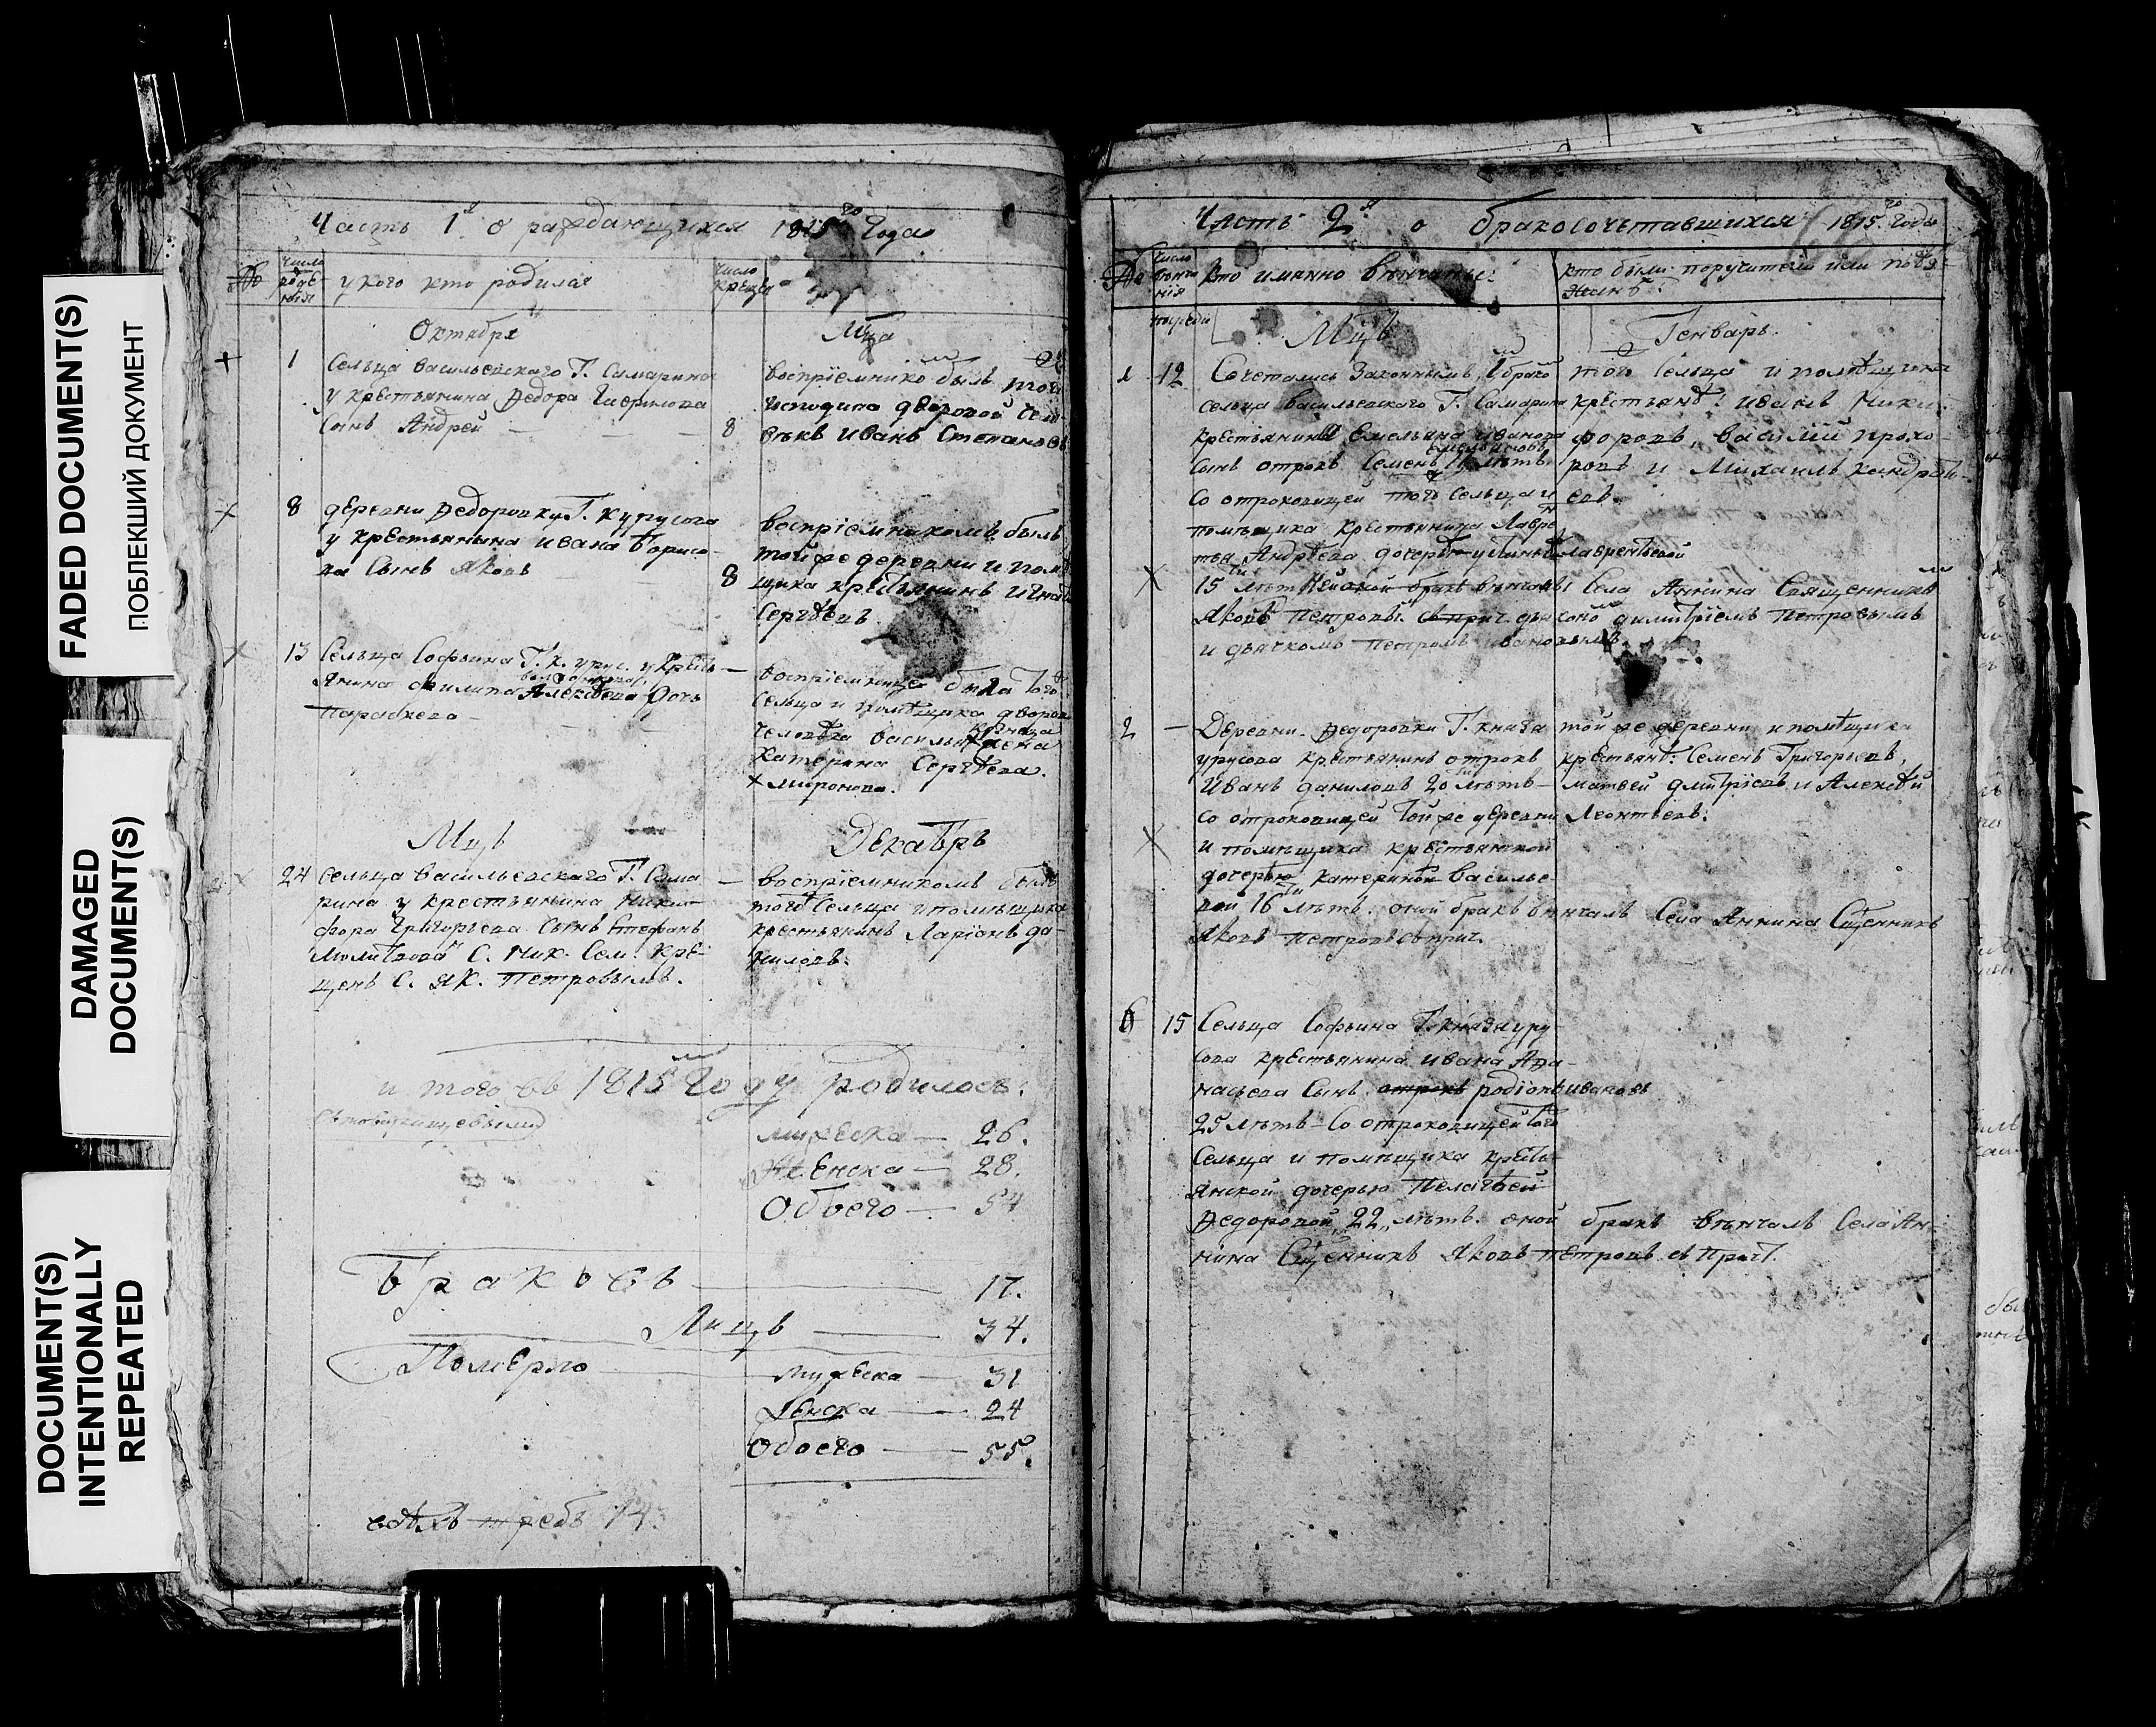 FADED DOCUMENT(S)
ПОБЛЕКШИЙ ДОКУМЕНТ
DAMAGED
DOCUMENT(S)
DOCUMENT(S)
INTENTIONALLY
REPEATED
Часть 1я о раждающихся 1815го Года
№
число рожденія
у кого кто родился
число крещен
Октября
Мца
1
Сельца Васильевскаго Г. Самарина
у крестьянина Ѳедора Гаврилова
Сынъ Андрей
8
воспріемнико былъ того
Господина дворовой чело
вѣкъ Иванъ Степановъ
8
деревни Ѳедоровки Г. К. Урусова
у крестьянина Ивана Борисо-
ва Сынъ Яковъ
8
воспріемникомъ былъ
той же деревни и пом
щика крестьянинъ Игнат
Сергѣевъ.
13
Сельца Софьина Г. К. Урус. у крѣсть-
янина Филипа Алексѣева дочь
Параскева
воспріемницею была того
Сельца и помѣщика дворов
человѣка Василья жена
Катерина Сергѣева.
Миронова.
Мцъ
Декабрь
24
Сельца Васильевскаго Г. Сама
рина у крестьянина Ники-
фора Григорьева Сынъ Стефанъ
Молитвова С. Ник. Сем. Кре-
щенъ С. Як. Петровымъ.
воспріемникомъ былъ
того Сельца и помѣщика
крестьянинъ Ларіонъ Да-
ниловъ.
и того въ 1815м Году родилось:
мужеска — 26.
Женска — 28.
Обоего — 54
Браковъ — 17.
Лицъ — 34.
Померло
мужеска — 31
Женска — 24
Обоего — 55.
требъ 14.
Часть 2я о бракосочетавшихся 1815го Года
№
число вѣнча нія
кто имянно вѣнчаны:
кто были поручители или поѣз-
жанѣ:
Мцъ
Генварь.
1
12
Сочетались Законнымъ 1м брако
сельца Васильевскаго Г. Самарина
крестьянина Емельяна Иванова
Сынъ отрокъ Семенъ Емельяновъ лѣтъ
Со отроковицей того Сельца и
помѣщика крестьянина Лаврен
тья Андрѣева дочерью Улиньей Лаврентьевой
15 лѣтъ оной бракъ вѣнчанъ Села Аннина Священником
Яковъ Петровы. дьяконо Димитріемъ Петровымъ
и дьячкомъ Петромъ Ивановымъ.
того Сельца и помѣщика
крестьянѣ: Иванъ Ники-
форовъ, Василій Прохо-
ровъ и Михаилъ Кондрать-
евъ.
2
Деревни Ѳедоровки Г. Князя
Урусова крестьянинъ отрокъ
Иванъ Даниловъ 20 лѣтъ
со отроковицей той же деревни
и помѣщика крѣстьянской
дочерью Катериной Василье
вой 16 лѣтъ. оной бракъ вѣнчалъ Села Аннина Сщенникъ
Яковъ Петровъ съ прич.
той же деревни и помѣщика
крестьянѣ: Семенъ Григорьевъ,
Матвей Дмитріевъ и Алексѣй
Леонтьевъ.
15
Сельца Софьина Г. Князя Уру
сова крестьянина Ивана Аѳа-
насьева Сынъ отрокъ Родіонъ Ивановъ
25 лѣтъ — Со отроковицей того
Сельца и помѣщика крѣсть-
янской дочерью Пелагѣей
Ѳедоровой, 22, лѣтъ. оной бракъ вѣнчалъ Села Ан-
нина Сщенникъ Яковъ Петровъ съ прич.